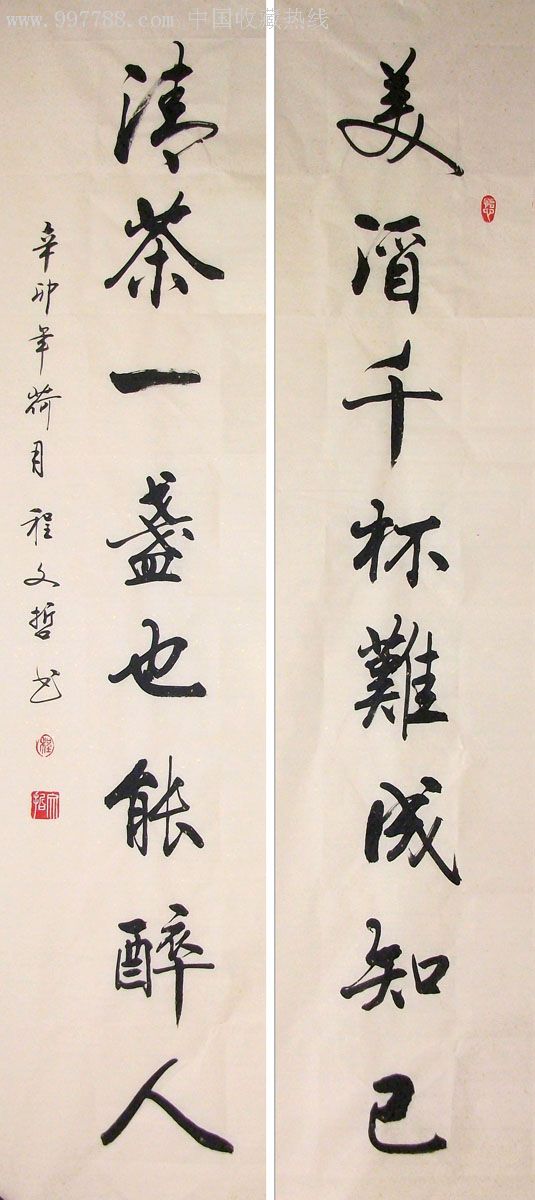 www.997788.com 中国收藏热线
美酒千杯難成知己
清茶一盏也能醉人
辛卯年荷月 程文哲书